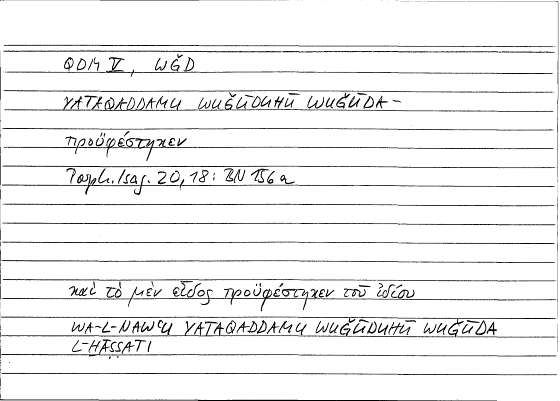 QDM V, WǦD
YATAQADDAMU WUǦŪDUHŪ WUǦŪDA-
προϋφέστηκεν
Porph. Isag. 20,18: BN 156a
καὶ τὸ μὲν εἶδος προϋφέστηκεν τοῦ ἰδίου
WA-L-NAWʿU YATAQADDAMU WUǦŪDUHŪ WUǦŪDA
L-ḪĀṢṢATI